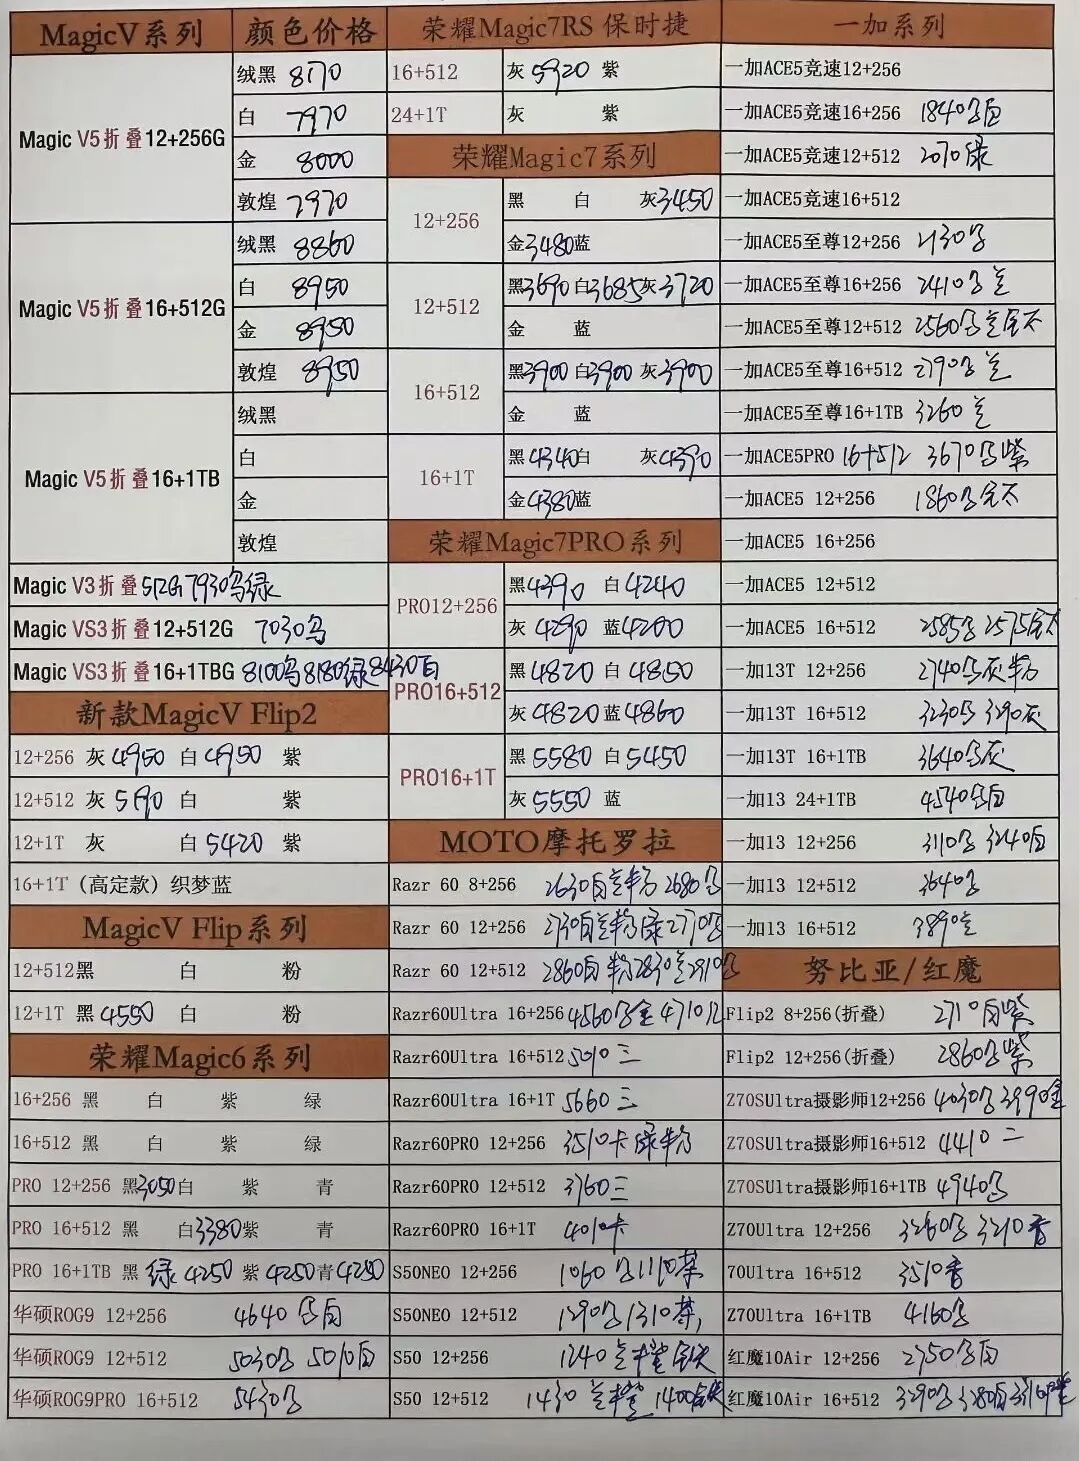 MagicV系列 颜色价格
Magic V5折叠12+256G
绒黑 8170
白 7970
金 8000
敦煌 7970
Magic V5折叠16+512G
绒黑 8860
白 8950
金 8950
敦煌 8950
Magic V5折叠16+1TB
绒黑
白
金
敦煌
Magic V3折叠512G 7930鸟绿
Magic VS3折叠12+512G 7030鸟
Magic VS3折叠16+1TBG 8100鸟8180绿8430白
新款MagicV Flip2
12+256 灰 4950 白 4950 紫
12+512 灰 5190 白 紫
12+1T 灰 白 5420 紫
16+1T（高定款）织梦蓝
MagicV Flip系列
12+512黑 白 粉
12+1T 黑 4550 白 粉
荣耀Magic6系列
16+256 黑 白 紫 绿
16+512 黑 白 紫 绿
PRO 12+256 黑3050白 紫 青
PRO 16+512 黑 白3380紫 青
PRO 16+1TB 黑 绿4250 紫4250青4250
华硕ROG9 12+256 4640 鸟白
华硕ROG9 12+512 5030鸟 5010白
华硕ROG9PRO 16+512 5430鸟
荣耀Magic7RS 保时捷
16+512 灰 5920 紫
24+1T 灰 紫
荣耀Magic7系列
12+256
黑 白 灰3450
金3480蓝
12+512
黑3690白3685灰3720
金 蓝
16+512
黑3900白3900灰3900
金 蓝
16+1T
黑4340白 灰4390
金4380蓝
荣耀Magic7PRO系列
PRO12+256
黑4390 白4240
灰4290 蓝4200
PRO16+512
黑4820 白4850
灰4820蓝4860
PRO16+1T
黑5580白5450
灰5550 蓝
MOTO摩托罗拉
Razr 60 8+256 2630白兰粉 2680鸟
Razr 60 12+256 2730白兰粉绿2770鸟
Razr 60 12+512 2860白粉2830兰2910鸟
Razr60Ultra 16+256 4560鸟金4710
Razr60Ultra 16+512 5010三
Razr60Ultra 16+1T 5660三
Razr60PRO 12+256 3510卡绿粉
Razr60PRO 12+512 3760三
Razr60PRO 16+1T 4010卡
S50NEO 12+256 1060鸟1110茶
S50NEO 12+512 1290鸟1310茶
S50 12+256 1240兰
S50 12+512 1430兰 1400
一加系列
一加ACE5竞速12+256
一加ACE5竞速16+256 1840鸟白
一加ACE5竞速12+512 2070绿
一加ACE5竞速16+512
一加ACE5至尊12+256 2130鸟
一加ACE5至尊16+256 2410鸟兰
一加ACE5至尊12+512 2560鸟兰全
一加ACE5至尊16+512 2790鸟兰
一加ACE5至尊16+1TB 3260兰
一加ACE5PRO 16+512 3670鸟紫
一加ACE5 12+256 1860鸟全
一加ACE5 16+256
一加ACE5 12+512
一加ACE5 16+512 2585鸟2575全
一加13T 12+256 2740鸟灰粉
一加13T 16+512 3230鸟3290灰
一加13T 16+1TB 3640鸟灰
一加13 24+1TB 4540鸟白
一加13 12+256 3110鸟 3240白
一加13 12+512 3640鸟
一加13 16+512 3890兰
努比亚/红魔
Flip2 8+256(折叠) 2710白紫
Flip2 12+256(折叠) 2860鸟紫
Z70SUltra摄影师12+256 4030鸟3990金
Z70SUltra摄影师16+512 4410二
Z70SUltra摄影师16+1TB 4940鸟
Z70Ultra 12+256 3260鸟3210香
70Ultra 16+512 3510香
Z70Ultra 16+1TB 4160鸟
红魔10Air 12+256 2750鸟白
红魔10Air 16+512 3290鸟3280白